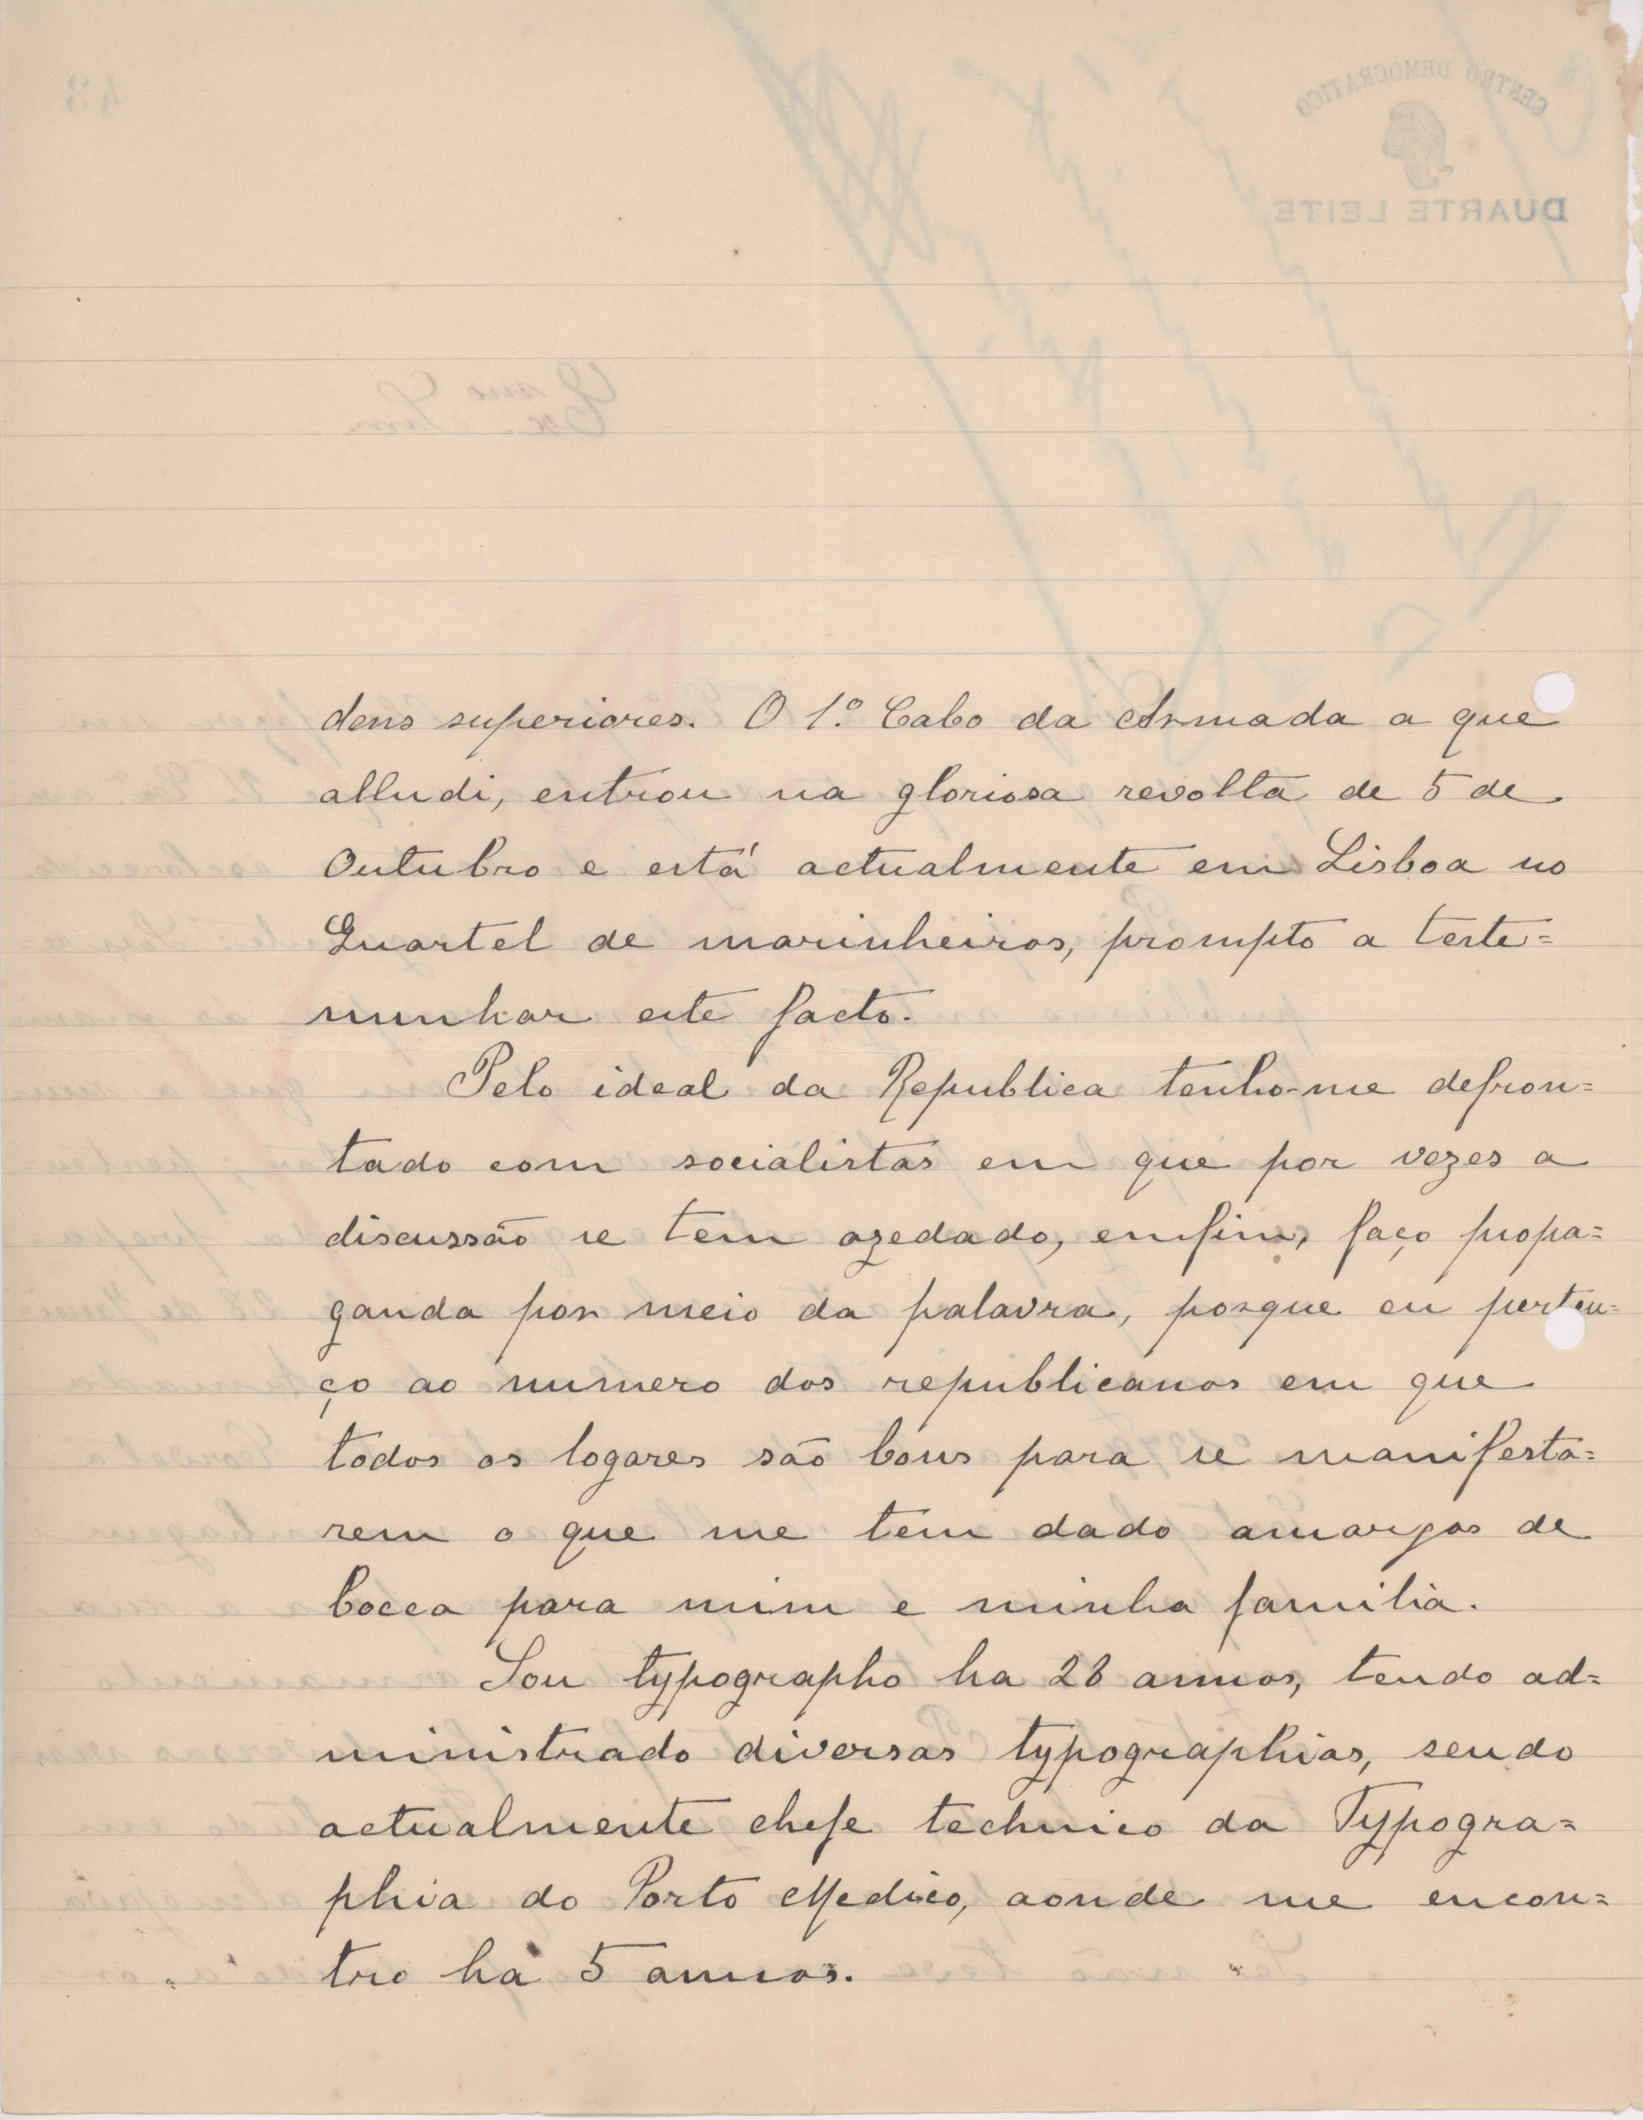 dens superiores. O 1.º Cabo da Armada a que
alludi, entrou na gloriosa revolta de 5 de
Outubro e está actualmente em Lisboa no
Quartel de marinheiros, prompto a teste=
munhar este facto.
Pelo ideal da Republica tenho-me defron=
tado com socialistas em que por vezes a
discussão se tem azedado, emfim, faço propa=
ganda por meio da palavra, porque eu perten=
ço ao numero dos republicanos em que
todos os logares são bons para se manifesta=
rem o que me tem dado amargos de
bocca para mim e minha familia.
Sou typographo ha 28 annos, tendo ad=
ministrado diversas typographias, sendo
actualmente chefe technico da Typogra=
phia do Porto Medico, aonde me encon=
tro há 5 annos.
CENTRO DEMOCRATICO
DUARTE LEITE
43
Ex.mo Snr.